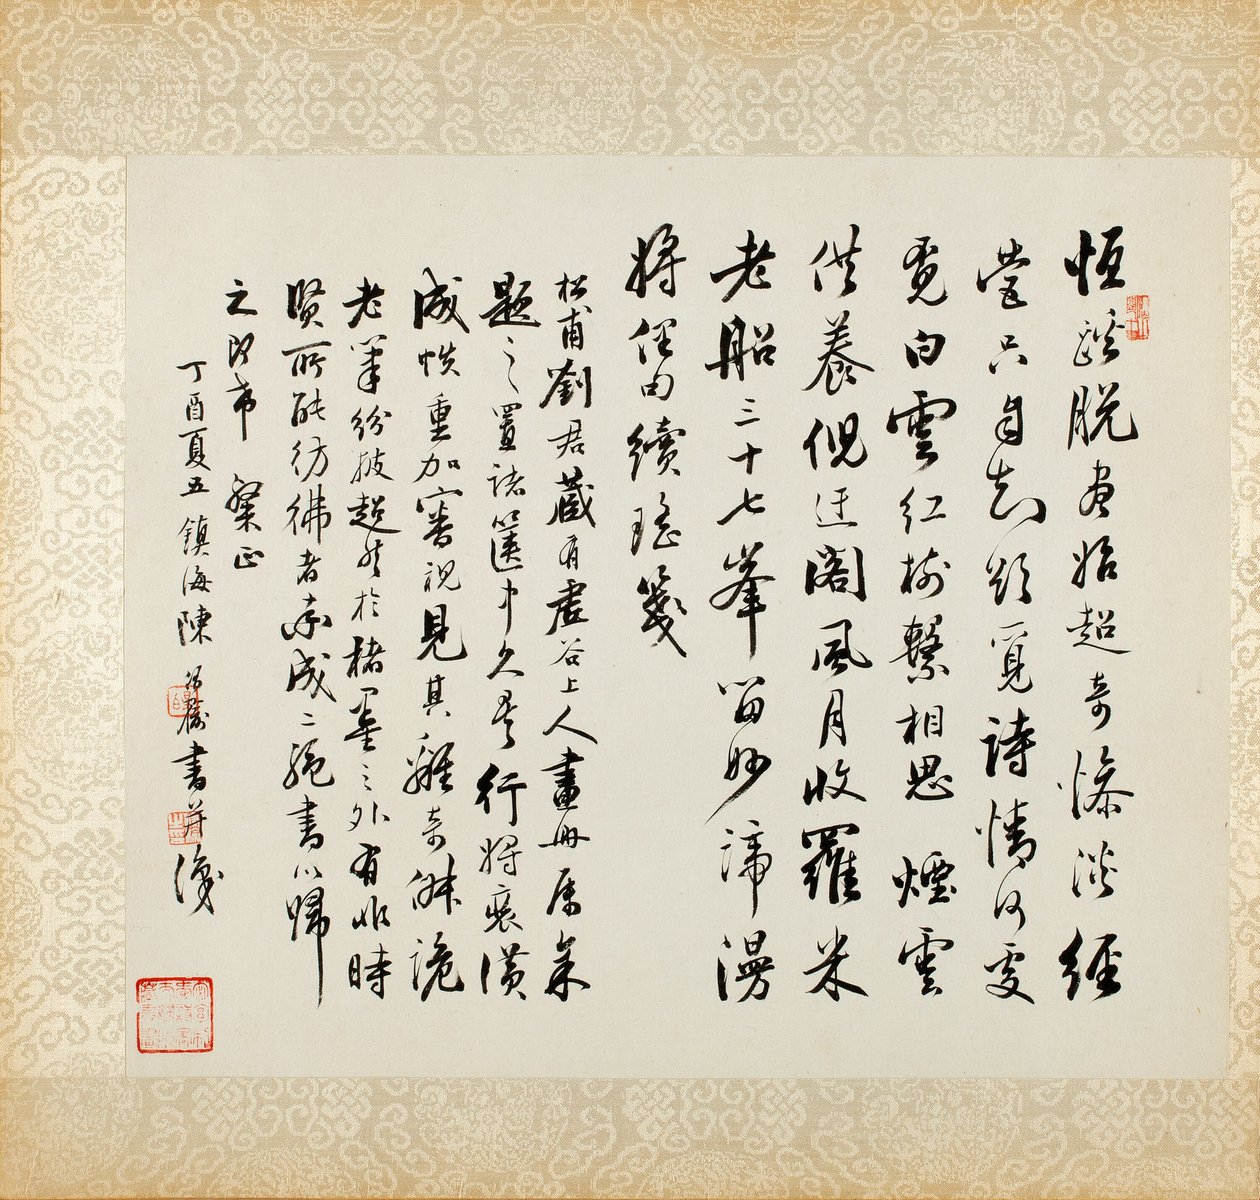 恒蹊脱盡始超奇慘淡經
營只自知欲覓詩情何處
覓白雲紅樹繫相思 煙雲
供養倪迂閣風月收羅米
老船三十七峯留妙諦漫
將俚句續瑤箋
松甫劉君藏有虛谷上人畫冊屬余
題之置諸篋中久矣行將裝潢
成帙重加審視見其離奇俶詭
老筆紛披超然於楮墨之外有非時
賢所能彷彿者成二絕書以歸
之即希 粲正
丁酉夏五鎮海陳書并識